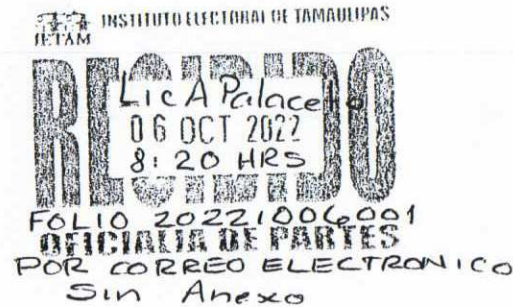 INSTITUTO ELECTORAL DE TAMAULIPAS
IETAM
RECIBIDO
Lic A Palacello
06 OCT 2022
8:20 HRS
FOLIO 20221006001
OFICIALIA DE PARTES
POR CORREO ELECTRONICO
Sin Anexo